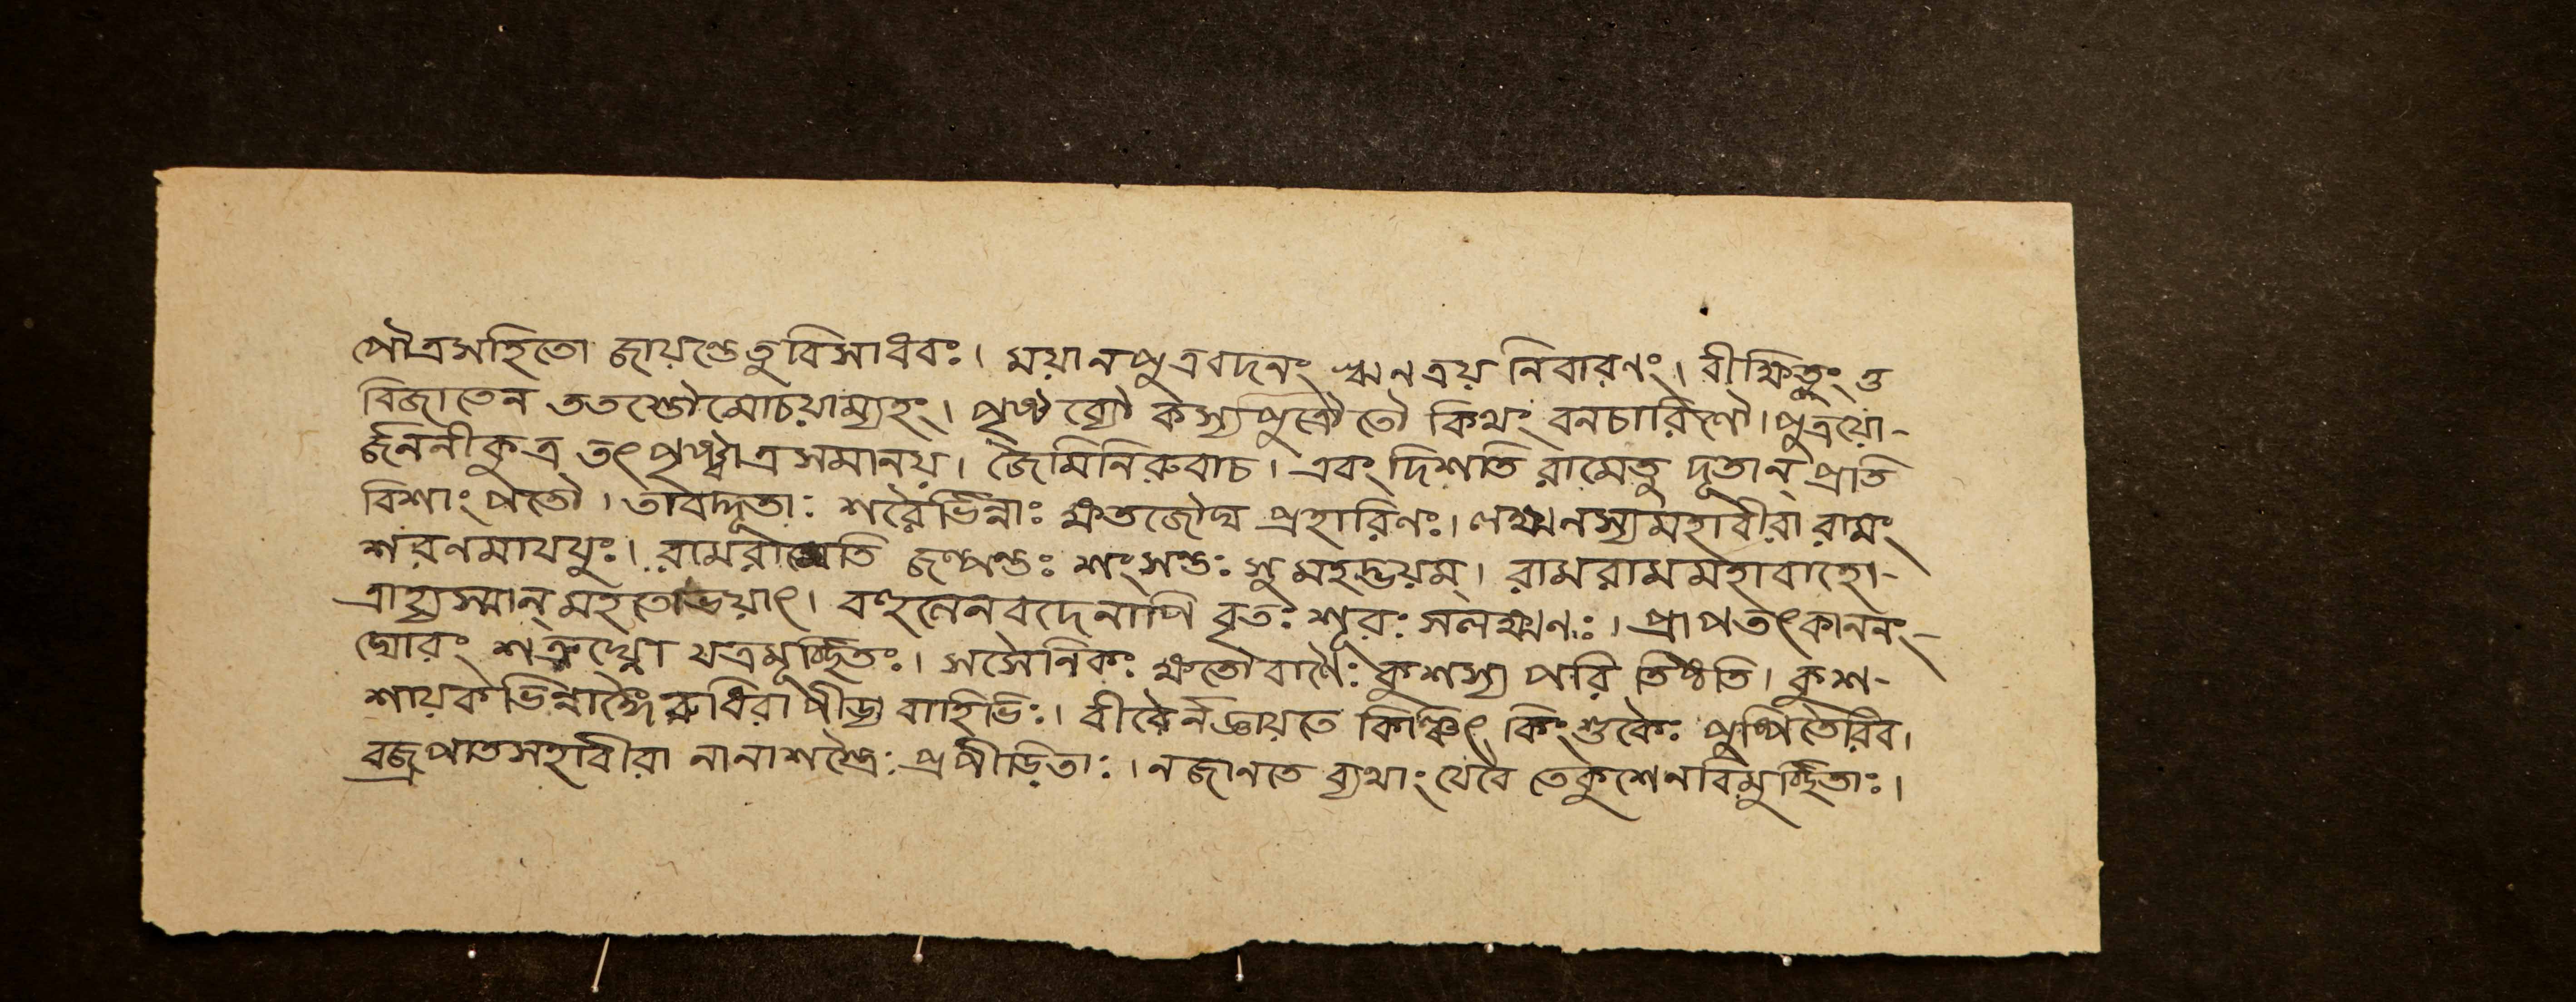 পৌত্রসহিতো জায়ণ্ডেতুবিসাধবঃ। ময়ানপুত্রবদনং ঋনত্রয় নিবারণং। বীক্ষিতুং ও
বিজাতেন ততস্তৌমোচয়াম্যহং। পৃথ্ব রৌ কস্যপুত্রৌ তৌ কিমর্থং বনচারিণৌ। পুত্রয়ো-
র্জননীকুত্র তৎপৃষ্ট্বাত্রসমানয়। জৈমিনিরুবাচ। এবং দিশতি রামেতু দূতান্ প্রতি
বিশাংপতৌ। তাবদ্দূতাঃ শরৈর্ভিন্নাঃ ক্ষতজৌঘ প্রহারিণঃ। লক্ষ্মনস্যমহাবীরা রামং
শরণমাযযুঃ। রামরামেতি জল্পন্তঃ শংসন্তঃ সুমহদ্ভয়ম্। রামরামমহাবাহো-
ত্রাহ্যস্মান্ মহতোভয়াৎ। বহুনেনবদেনাপি বৃতঃ শূরঃ সলক্ষ্মণঃ। প্রাপতৎকাননং-
ঘোরং শত্রুঘ্নো যত্রমূর্চ্ছিতঃ। সসৈনিকঃ ক্ষতৌবাণৈঃ কুশস্য পরি তিষ্ঠতি। কুশ-
শায়কভিন্নাঙ্গৈ রুধিরাপীড্য বাহিভিঃ। বীরৈর্নজ্ঞায়তে কিঞ্চিৎ কিংশুকৈঃ পুষ্পিতৈরিব।
বজ্রপাতসহাবীরা নানাশস্ত্রৈঃ প্রপীড়িতাঃ। নজানতে ব্যথাং যেবৈ তেকুশেনবিমুর্চ্ছিতাঃ।